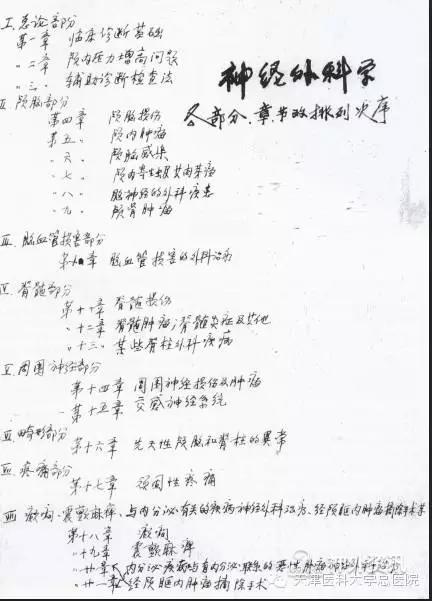 神经外科学
各部分、章节改排列次序
I. 总论部分
第一章 临床诊断基础
〃二章 颅内压力增高问题
〃三〃 辅助诊断检查法
II. 颅脑部分
第四章 颅脑损伤
第五〃 颅内肿瘤
〃六〃 颅脑感染
〃七〃 颅内寄生虫及其肉芽肿
〃八〃 脑神经的外科疾患
〃九〃 颅骨肿瘤
III. 脑血管损害部分
第十章 脑血管损害的外科治疗
IV. 脊髓部分
第十一章 脊髓损伤
〃十二章 脊髓肿瘤;脊髓炎症及其他
〃十三〃 某些脊柱外科疾病
V. 周围神经部分
第十四章 周围神经损伤及肿瘤
第十五章 交感神经系统
VI. 畸形部分
第十六章 先天性颅脑和脊柱的异常
VII. 疼痛部分
第十七章 顽固性疼痛
VIII. 癫痫、震颤麻痹、与内分泌有关的疾病神经外科治疗、经颅眶内肿瘤摘除术等
第十八章 癫痫
〃十九章 震颤麻痹
〃廿章 内分泌疾病与有内分泌联系的恶性肿瘤神经外科治疗
〃廿一章 经颅眶内肿瘤摘除手术
天津医科大学总医院